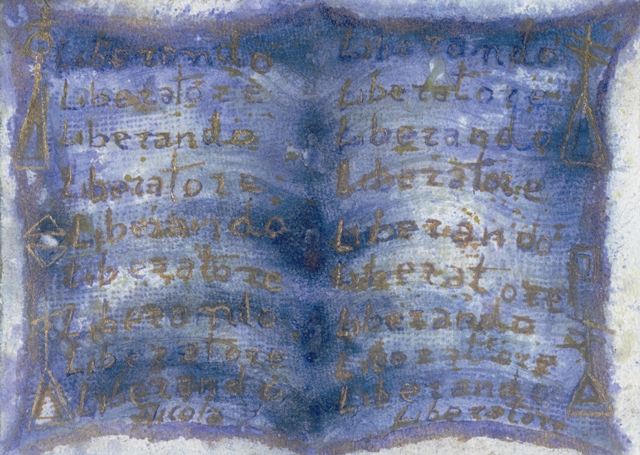 Liberando
Liberatore
Liberando
Liberatore
Liberando
Liberatore
Liberando
Liberatore
Liberando
Nicola
Liberando
Liberatore
Liberando
Liberatore
Liberando
Liberatore
Liberando
Liberatore
Liberando
Liberatore